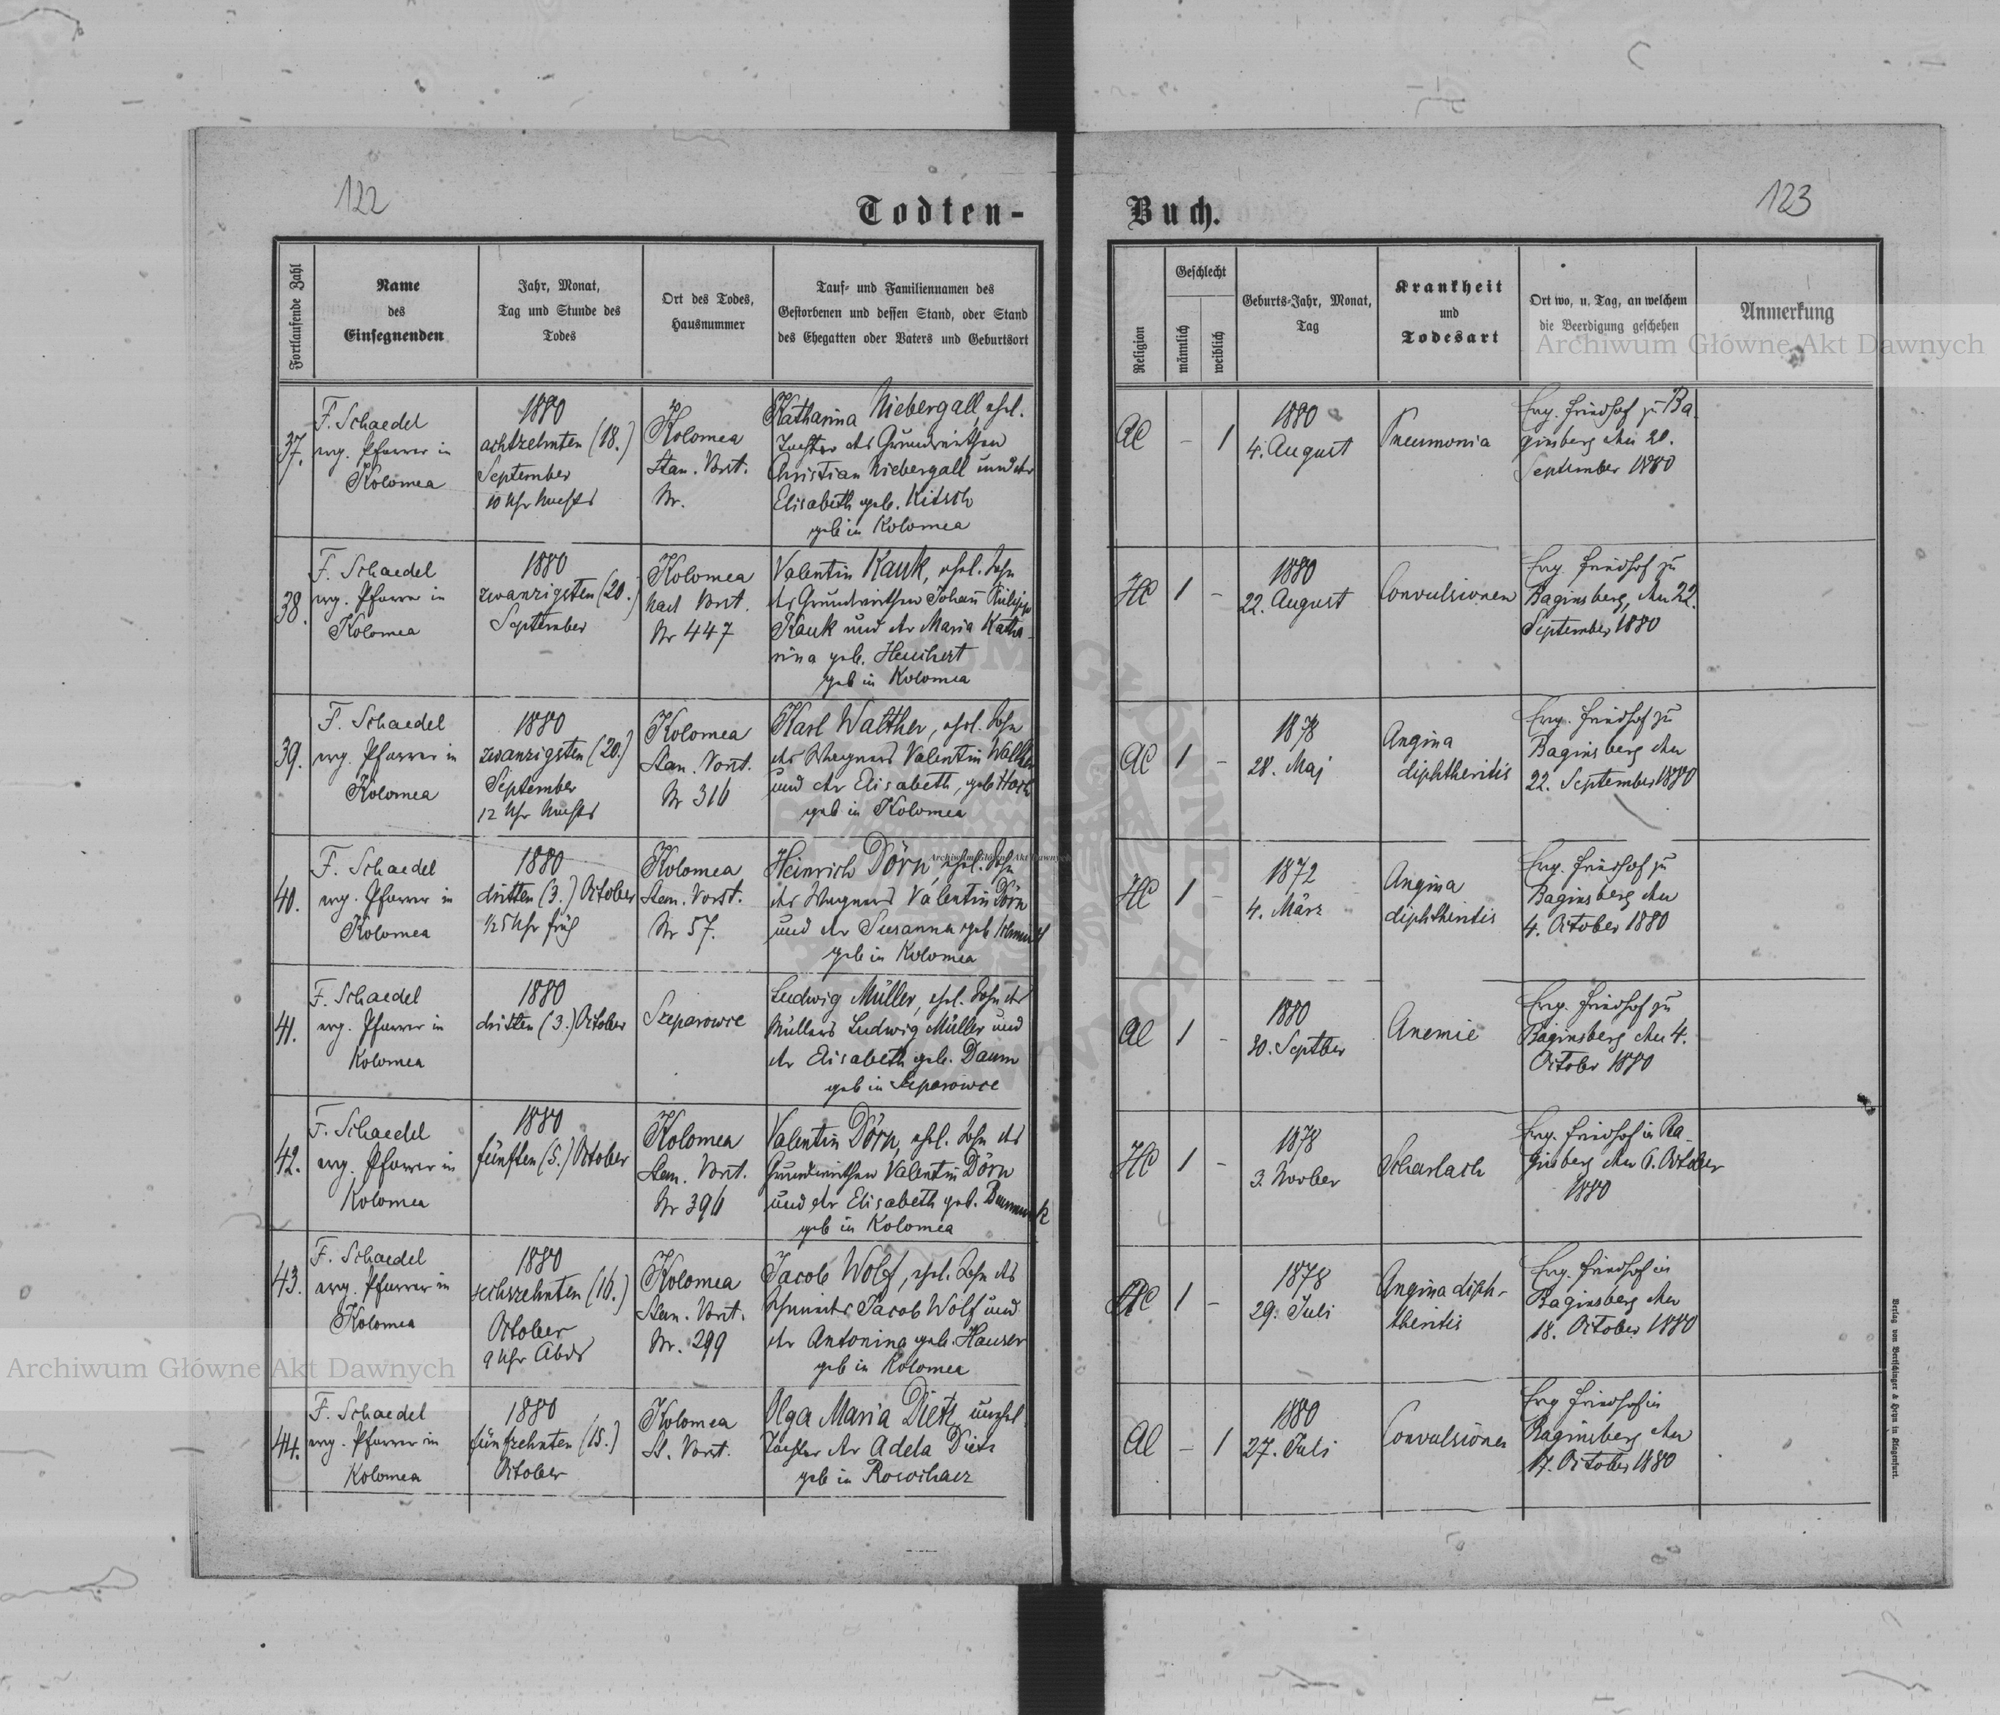 122
Todten-
Fortlaufende Zahl
Name
des
Einsegnenden
Jahr, Monat,
Tag und Stunde des
Todes
Ort des Todes,
Hausnummer
Tauf- und Familiennamen des
Gestorbenen und dessen Stand, oder Stand
des Ehegatten oder Vaters und Geburtsort
37.
F. Schaedel
evg. Pfarrer in
Kolomea
1880
achtzehnten (18.)
September
10 Uhr Nachts
Kolomea
Stan. Vorst.
Nr.
Katharina Niebergall, ehel.
Tochter des Grundwirthen
Christian Niebergall und der
Elisabeth geb. Kitsch
geb in Kolomea
38.
F. Schaedel
evg. Pfarrer in
Kolomea
1880
zwanzigsten (20.)
September
Kolomea
Vorst.
Nr 447
Valentin Kauk, ehel. Sohn
des Grundwirthen Johann Philipp
Kauk und der Maria Katha-
rina geb. Heuchert
geb in Kolomea
39.
F. Schaedel
evg. Pfarrer in
Kolomea
1880
zwanzigsten (20.)
September
12 Uhr Nachts
Kolomea
Stan. Vorst.
Nr 316
Karl Walther, ehel. Sohn
des Wagners Valentin Walther
und der Elisabeth, geb
geb in Kolomea
40.
F. Schaedel
evg. Pfarrer in
Kolomea
1880
dritten (3.) October
½5 Uhr früh
Kolomea
Stan. Vorst.
Nr 57.
Heinrich Dörn, ehel. Sohn
des Wagners Valentin Dörn
und der Susanna geb Schmidt
geb in Kolomea
41.
F. Schaedel
evg. Pfarrer in
Kolomea
1880
dritten (3.) October
Szeparowce
Ludwig Müller, ehel. Sohn des
Müllers Ludwig Müller und
der Elisabeth geb. Daum
geb in Szeparowce
42.
F. Schaedel
evg. Pfarrer in
Kolomea
1880
fünften (5.) October
Kolomea
Stan. Vorst.
Nr 396
Valentin Dörn, ehel. Sohn des
Grundwirthen Valentin Dörn
und der Elisabeth geb.
geb in Kolomea
43.
F. Schaedel
evg. Pfarrer in
Kolomea
1880
sechszehnten (16.)
October
9 Uhr Abds
Kolomea
Stan. Vorst.
Nr. 299
Jacob Wolf, ehel. Sohn des
Schmieds Jacob Wolf und
der Antonina geb. Hauser
geb in Kolomea
44.
F. Schaedel
evg. Pfarrer in
Kolomea
1880
fünfzehnten (15.)
October
Kolomea
St. Vorst.
Olga Maria Dietz, unehel.
Tochter der Adela Dietz
geb in Rosochacz
123
Buch.
Religion
Geschlecht
männlich
weiblich
Geburts-Jahr, Monat,
Tag
Krankheit
und
Todesart
Ort wo, u. Tag, an welchem
die Beerdigung geschehen
Anmerkung
AC
-
1
1880
4. August
Pneumonia
Evg. Friedhof zu Ba-
ginsberg den 20.
September 1880
HC
1
-
1880
22. August
Convulsionen
Evg. Friedhof zu
Baginsberg, den 22.
September 1880
AC
1
-
1878
28. Mai
Angina
diphtheritis
Evg. Friedhof zu
Baginsberg den
22. September 1880
HC
1
-
1872
4. März
Angina
diphtheritis
Evg. Friedhof zu
Baginsberg den
4. October 1880
AC
1
-
1880
30. Septber
Anemie
Evg. Friedhof zu
Baginsberg den 4.
October 1880
HC
1
-
1878
3. Novber
Scharlach
Evg. Friedhof in Ba-
ginsberg den 6. October
1880
1
-
1878
29. Juli
Angina diph-
theritis
Evg. Friedhof in
Baginsberg den
18. October 1880
AC
-
1
1880
27. Juli
Convulsionen
Evg Friedhof in
Baginsberg den
17. October 1880
Verlag von Bertschinger & Heyn in Klagenfurt.
Archiwum Główne Akt Dawnych
Archiwum Główne Akt Dawnych
Archiwum Główne Akt Dawnych